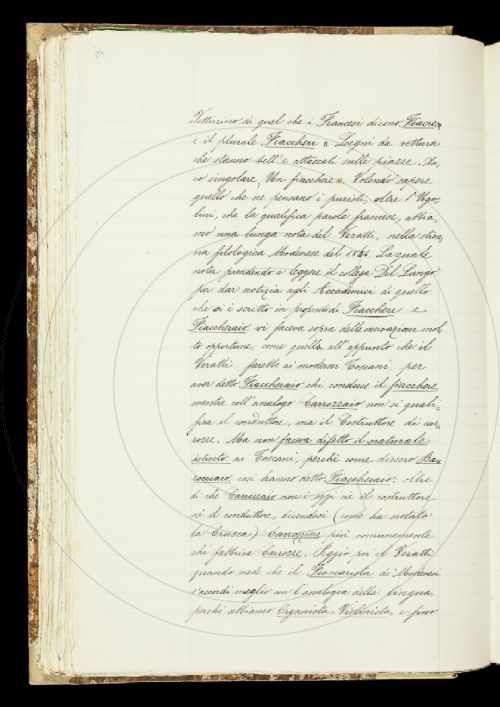 Vetturino di quel che i Francesi dicono Fiacre,
e il plurale Fiaccheri a Legni da vettura
che stanno bell'e attaccati sulle piazze. An,
co' singolare, Un fiacchere ». Volendo sapere
quello che ne pensano i puristi, oltre l'Ugo,
lini, che la qualifica parola francese, abbia,
mo una lunga nota del Veratti, nella stren,
na filologica Modenese del 1864. La quale
nota prendendo a leggere il collega Del Lungo
per dar notizia agli Accademici di quello
che vi è scritto in proposito di Fiacchere e
Fiaccheraio vi faceva sopra delle osservazioni mol,
to opportune, come quella all'appunto che il
Veratti farebbe ai moderni Toscani, per
aver detto Fiaccheraio chi conduce il fiacchere,
mentre coll'analogo Carrozzaio non si quali,
fica il conduttore, ma il Costruttore di car,
rozze. Ma non faceva difetto il naturale
istinto ai Toscani, perché come dissero Ba,
rocciaio, così hanno detto Fiaccheraio: oltre
di che Carrozzaio non è oggi nè il costruttore
nè il conduttore, dicendosi (come ha notato
la Crusca) Carrozziere più comunemente
chi fabbrica Carrozze. Peggio poi il Veratti
quando vede che il Fiaccarista de' Modenesi
s'accordi meglio con l'analogia della lingua,
perché abbiamo Organista, Violinista, e fino